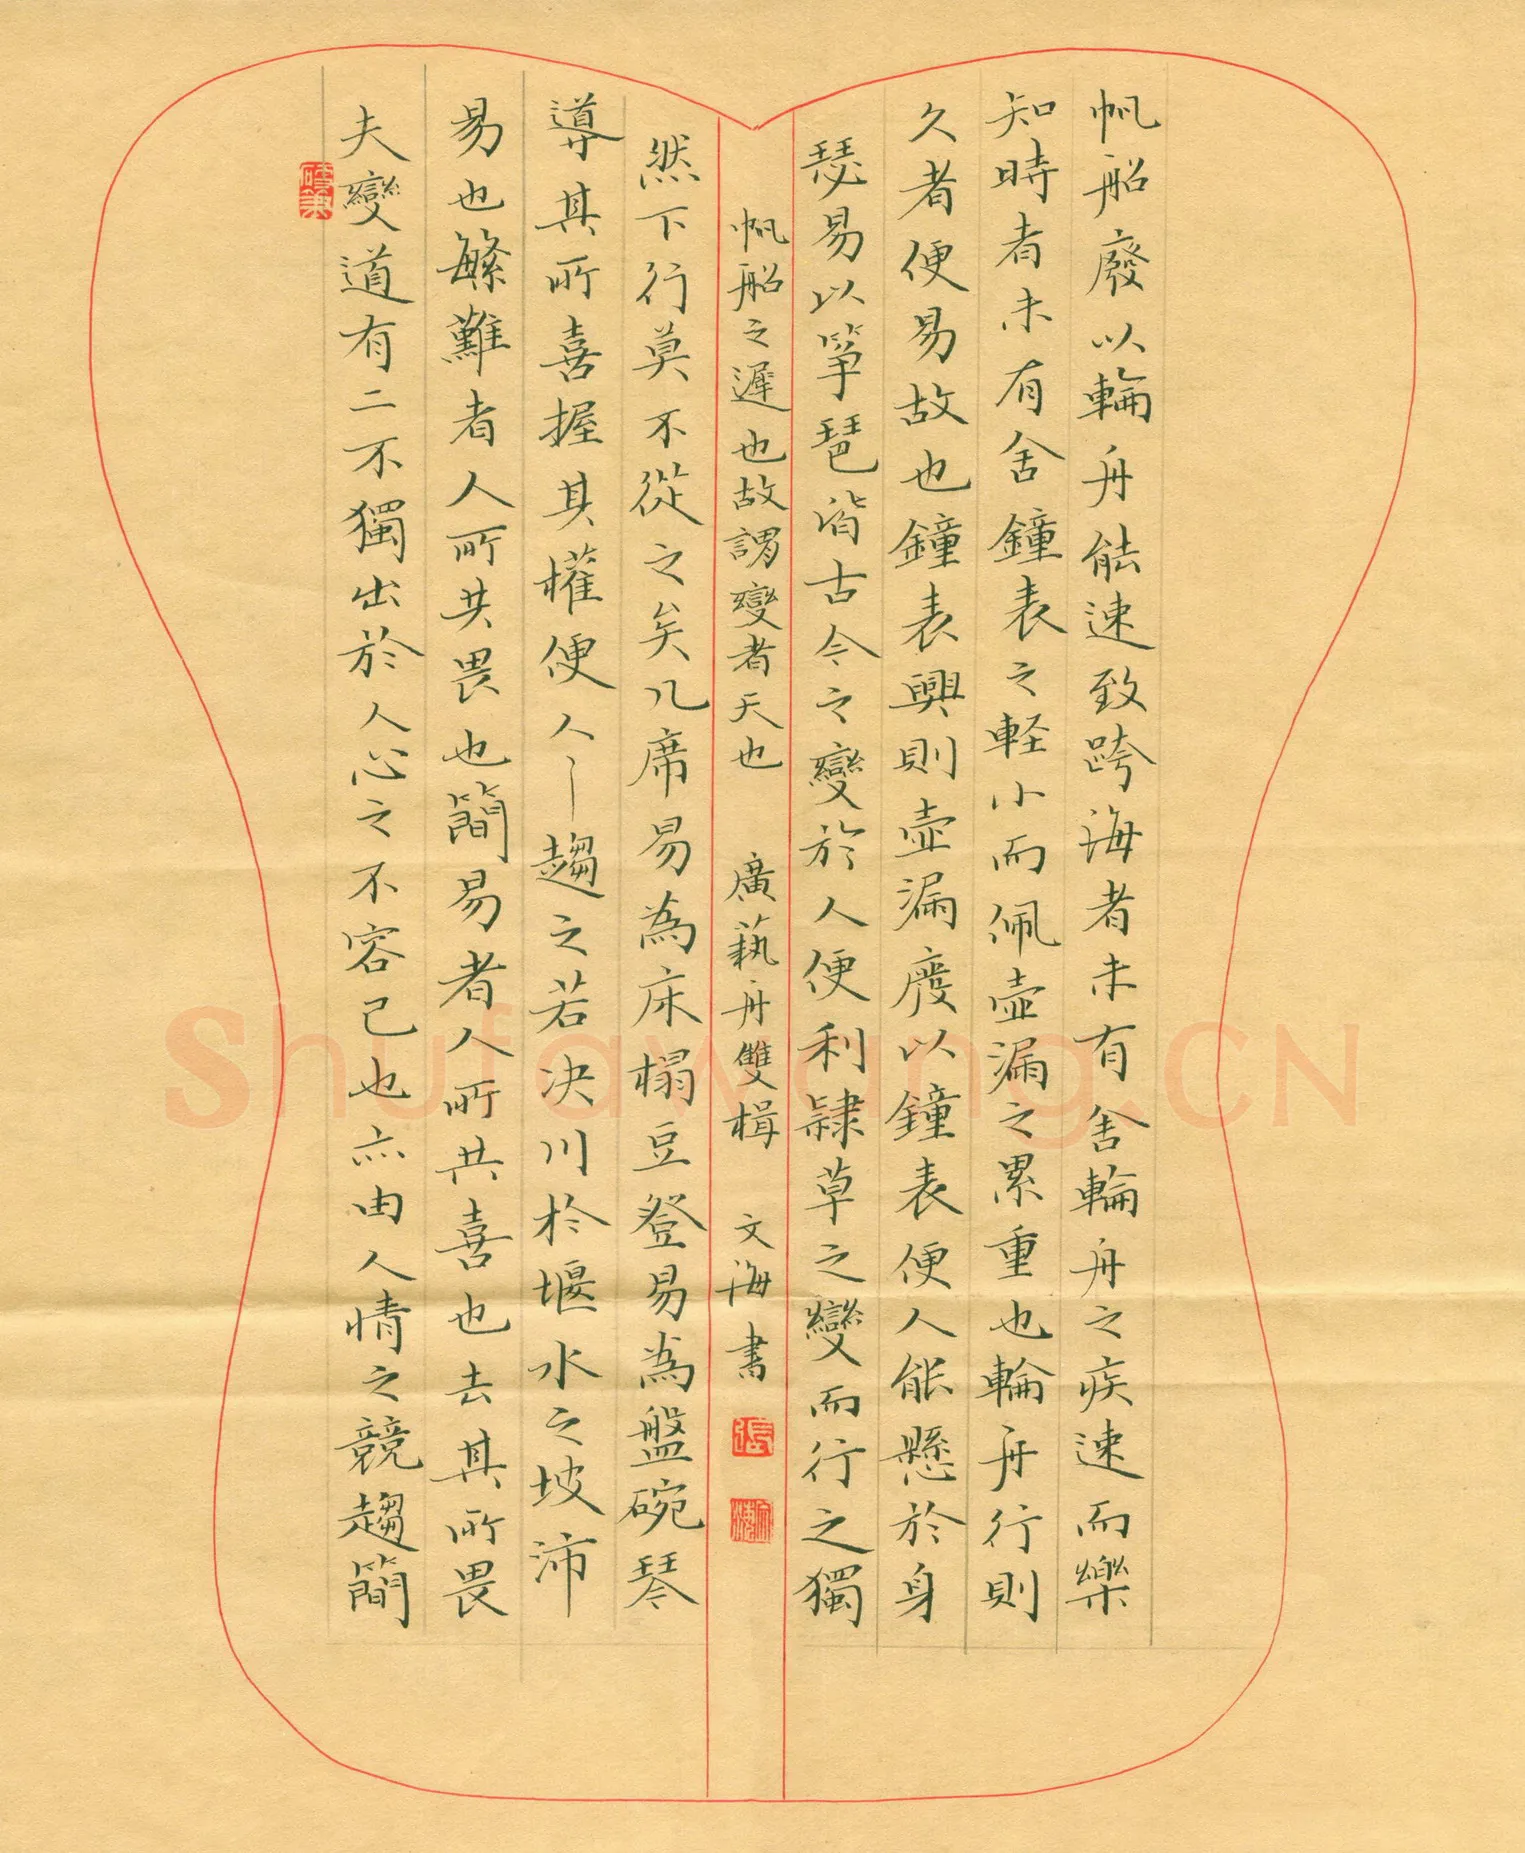 夫變道有二不獨出於人心之不容已也亦由人情之競趨簡
易也繁難者人所共畏也簡易者人所共喜也去其所畏
導其所喜握其權便人趨之若决川於堰水之坡沛
然下行莫不從之矣几席易為床榻豆登易為盤碗琴
瑟易以箏琶皆古今之變於人便利隸草之變而行之獨
久者便易故也鐘表興則壺漏廢以鐘表便人能懸於身
知時者未有舍鐘表之軽小而佩壺漏之累重也輪舟行則
帆船廢以輪舟能速致跨海者未有舍輪舟之疾速而樂
帆船之遲也故謂變者天也 廣藝舟雙楫 文海書
Shufawang.CN